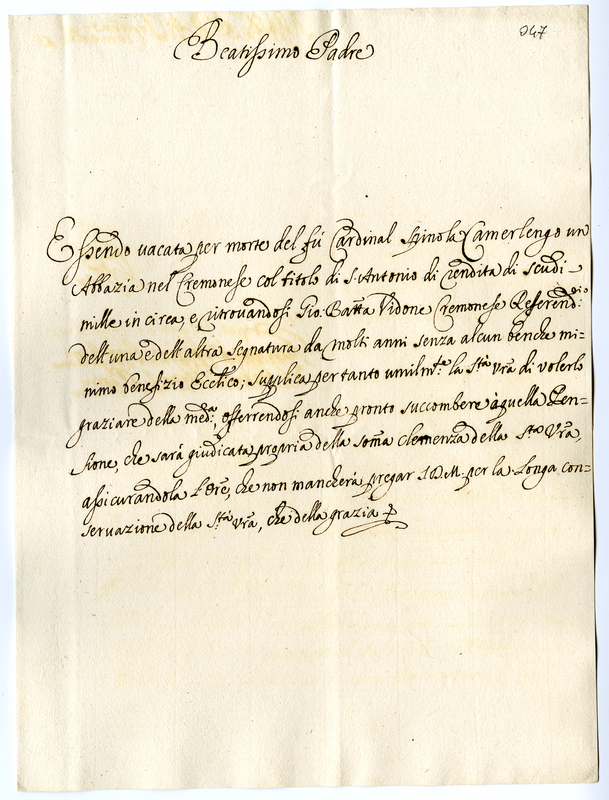 947
Beatissimo Padre
Essendo vacata per morte del fù Cardinal Spinola Camerlengo un
Abbazia nel Cremonese col titolo di S. Antonio di rendita di scudi
mille in circa, e ritrovandosi Gio: Batta Vidone Cremonese Referend:rio
dell'una e dell'altra segnatura da molti anni senza alcun benche mi=
nimo benefizio Eccl.ico; supplica per tanto umilm.te la S.tà Vrã di volerlo
graziare della med.a, offerrendosi anche pronto succombere à quella Pen=
sione, che sarà giudicata propria della soma clemenza della S.tà Vrã,
assicurandola l'Ore, che non mancherà pregar S.D.M. per la longa con=
servazione della S.tà Vrã, che della grazia &